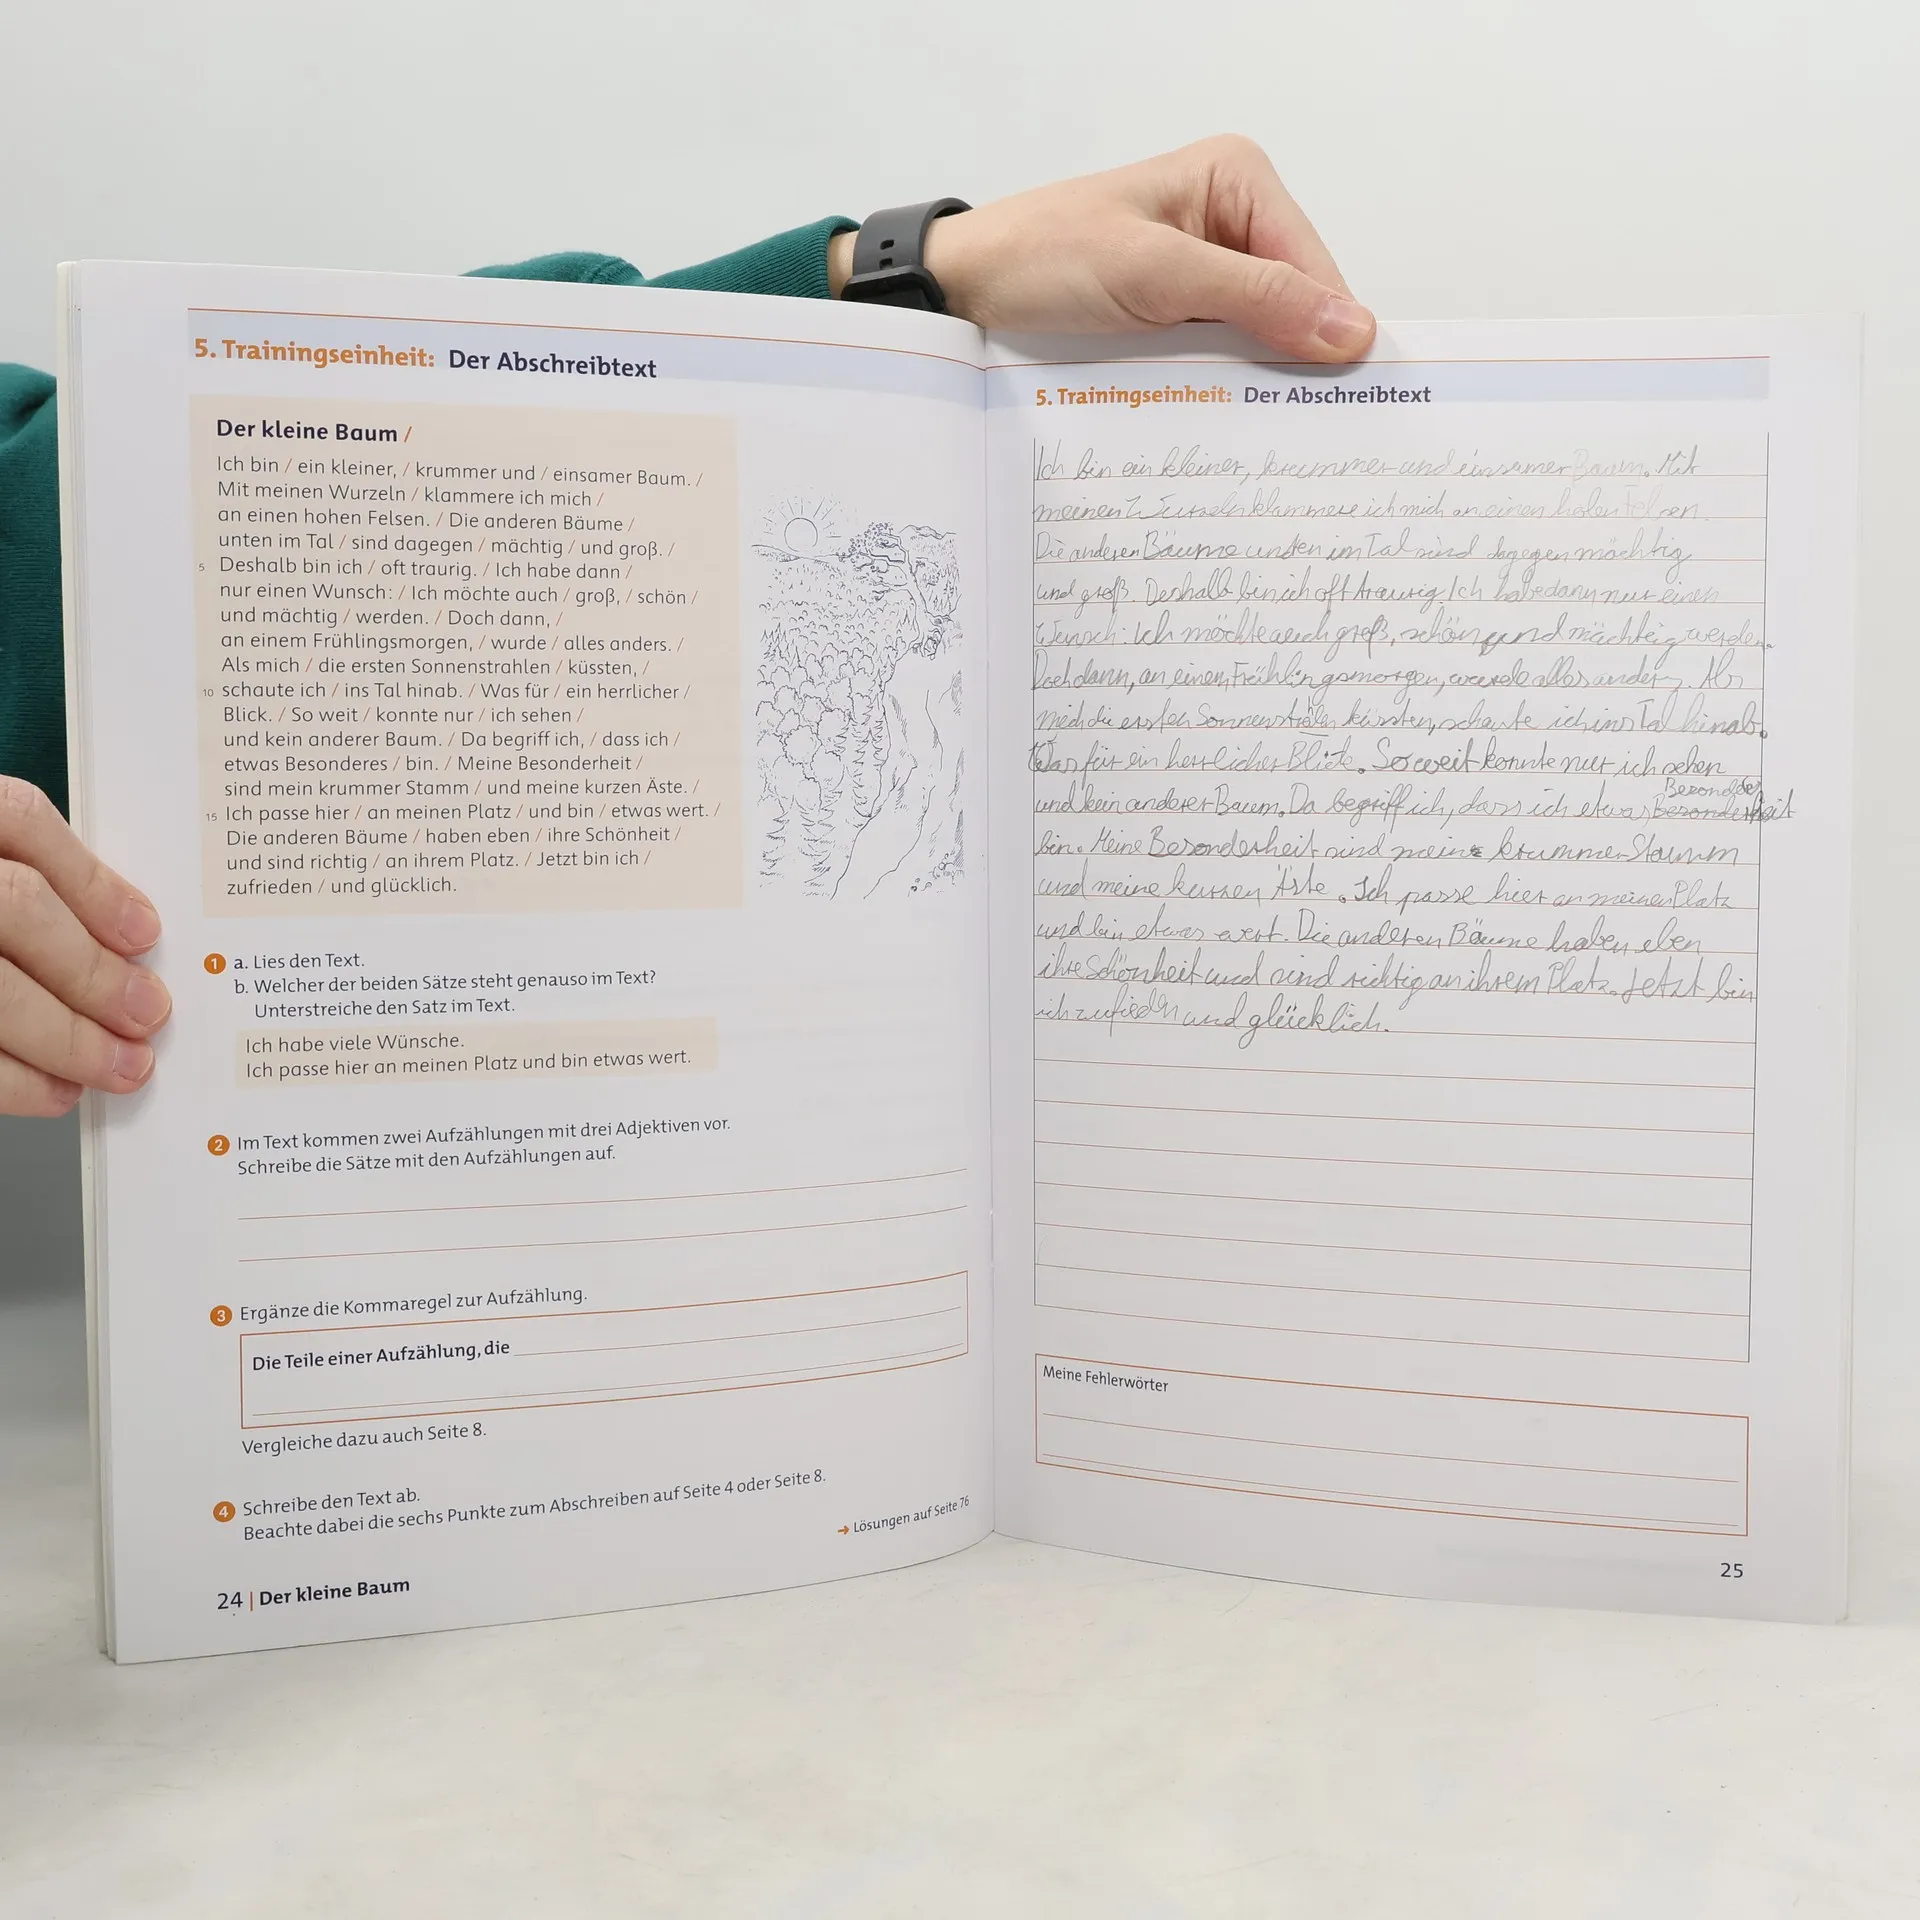 5. Trainingseinheit: Der Abschreibtext
Der kleine Baum /
Ich bin / ein kleiner, / krummer und / einsamer Baum. /
Mit meinen Wurzeln / klammere ich mich /
an einen hohen Felsen. / Die anderen Bäume /
unten im Tal / sind dagegen / mächtig / und groß. /
5 Deshalb bin ich / oft traurig. / Ich habe dann /
nur einen Wunsch: / Ich möchte auch / groß, / schön /
und mächtig / werden. / Doch dann, /
an einem Frühlingsmorgen, / wurde / alles anders. /
Als mich / die ersten Sonnenstrahlen / küssten, /
10 schaute ich / ins Tal hinab. / Was für / ein herrlicher /
Blick. / So weit / konnte nur / ich sehen /
und kein anderer Baum. / Da begriff ich, / dass ich /
etwas Besonderes / bin. / Meine Besonderheit /
sind mein krummer Stamm / und meine kurzen Äste. /
15 Ich passe hier / an meinen Platz / und bin / etwas wert. /
Die anderen Bäume / haben eben / ihre Schönheit /
und sind richtig / an ihrem Platz. / Jetzt bin ich /
zufrieden / und glücklich.
1 a. Lies den Text.
b. Welcher der beiden Sätze steht genauso im Text?
Unterstreiche den Satz im Text.
Ich habe viele Wünsche.
Ich passe hier an meinen Platz und bin etwas wert.
2 Im Text kommen zwei Aufzählungen mit drei Adjektiven vor.
Schreibe die Sätze mit den Aufzählungen auf.
3 Ergänze die Kommaregel zur Aufzählung.
Die Teile einer Aufzählung, die
Vergleiche dazu auch Seite 8.
4 Schreibe den Text ab.
Beachte dabei die sechs Punkte zum Abschreiben auf Seite 4 oder Seite 8.
→ Lösungen auf Seite 76
24 | Der kleine Baum
5. Trainingseinheit: Der Abschreibtext
Ich bin ein kleiner, krummer und einsamer Baum. Mit
meinen Wurzeln klammere ich mich an einen hohen Felsen.
Die anderen Bäume unten im Tal sind dagegen mächtig
und groß. Deshalb bin ich oft traurig. Ich habe dann nur einen
Wunsch: Ich möchte auch groß, schön und mächtig werden.
Doch dann, an einem Frühlingsmorgen, wurde alles anders. Als
mich die ersten Sonnenstralen küssten, schaute ich ins Tal hinab.
Was für ein herrlicher Blick. So weit konnte nur ich sehen
Besonders
und kein anderer Baum. Da begriff ich, dass ich etwas Besonderheit
bin. Meine Besonderheit sind mein krummer Stamm
und meine kurzen Äste. Ich passe hier an meinen Platz
und bin etwas wert. Die anderen Bäume haben eben
ihre Schönheit und sind richtig an ihrem Platz. Jetzt bin
ich zufieden und glücklich.
Meine Fehlerwörter
25